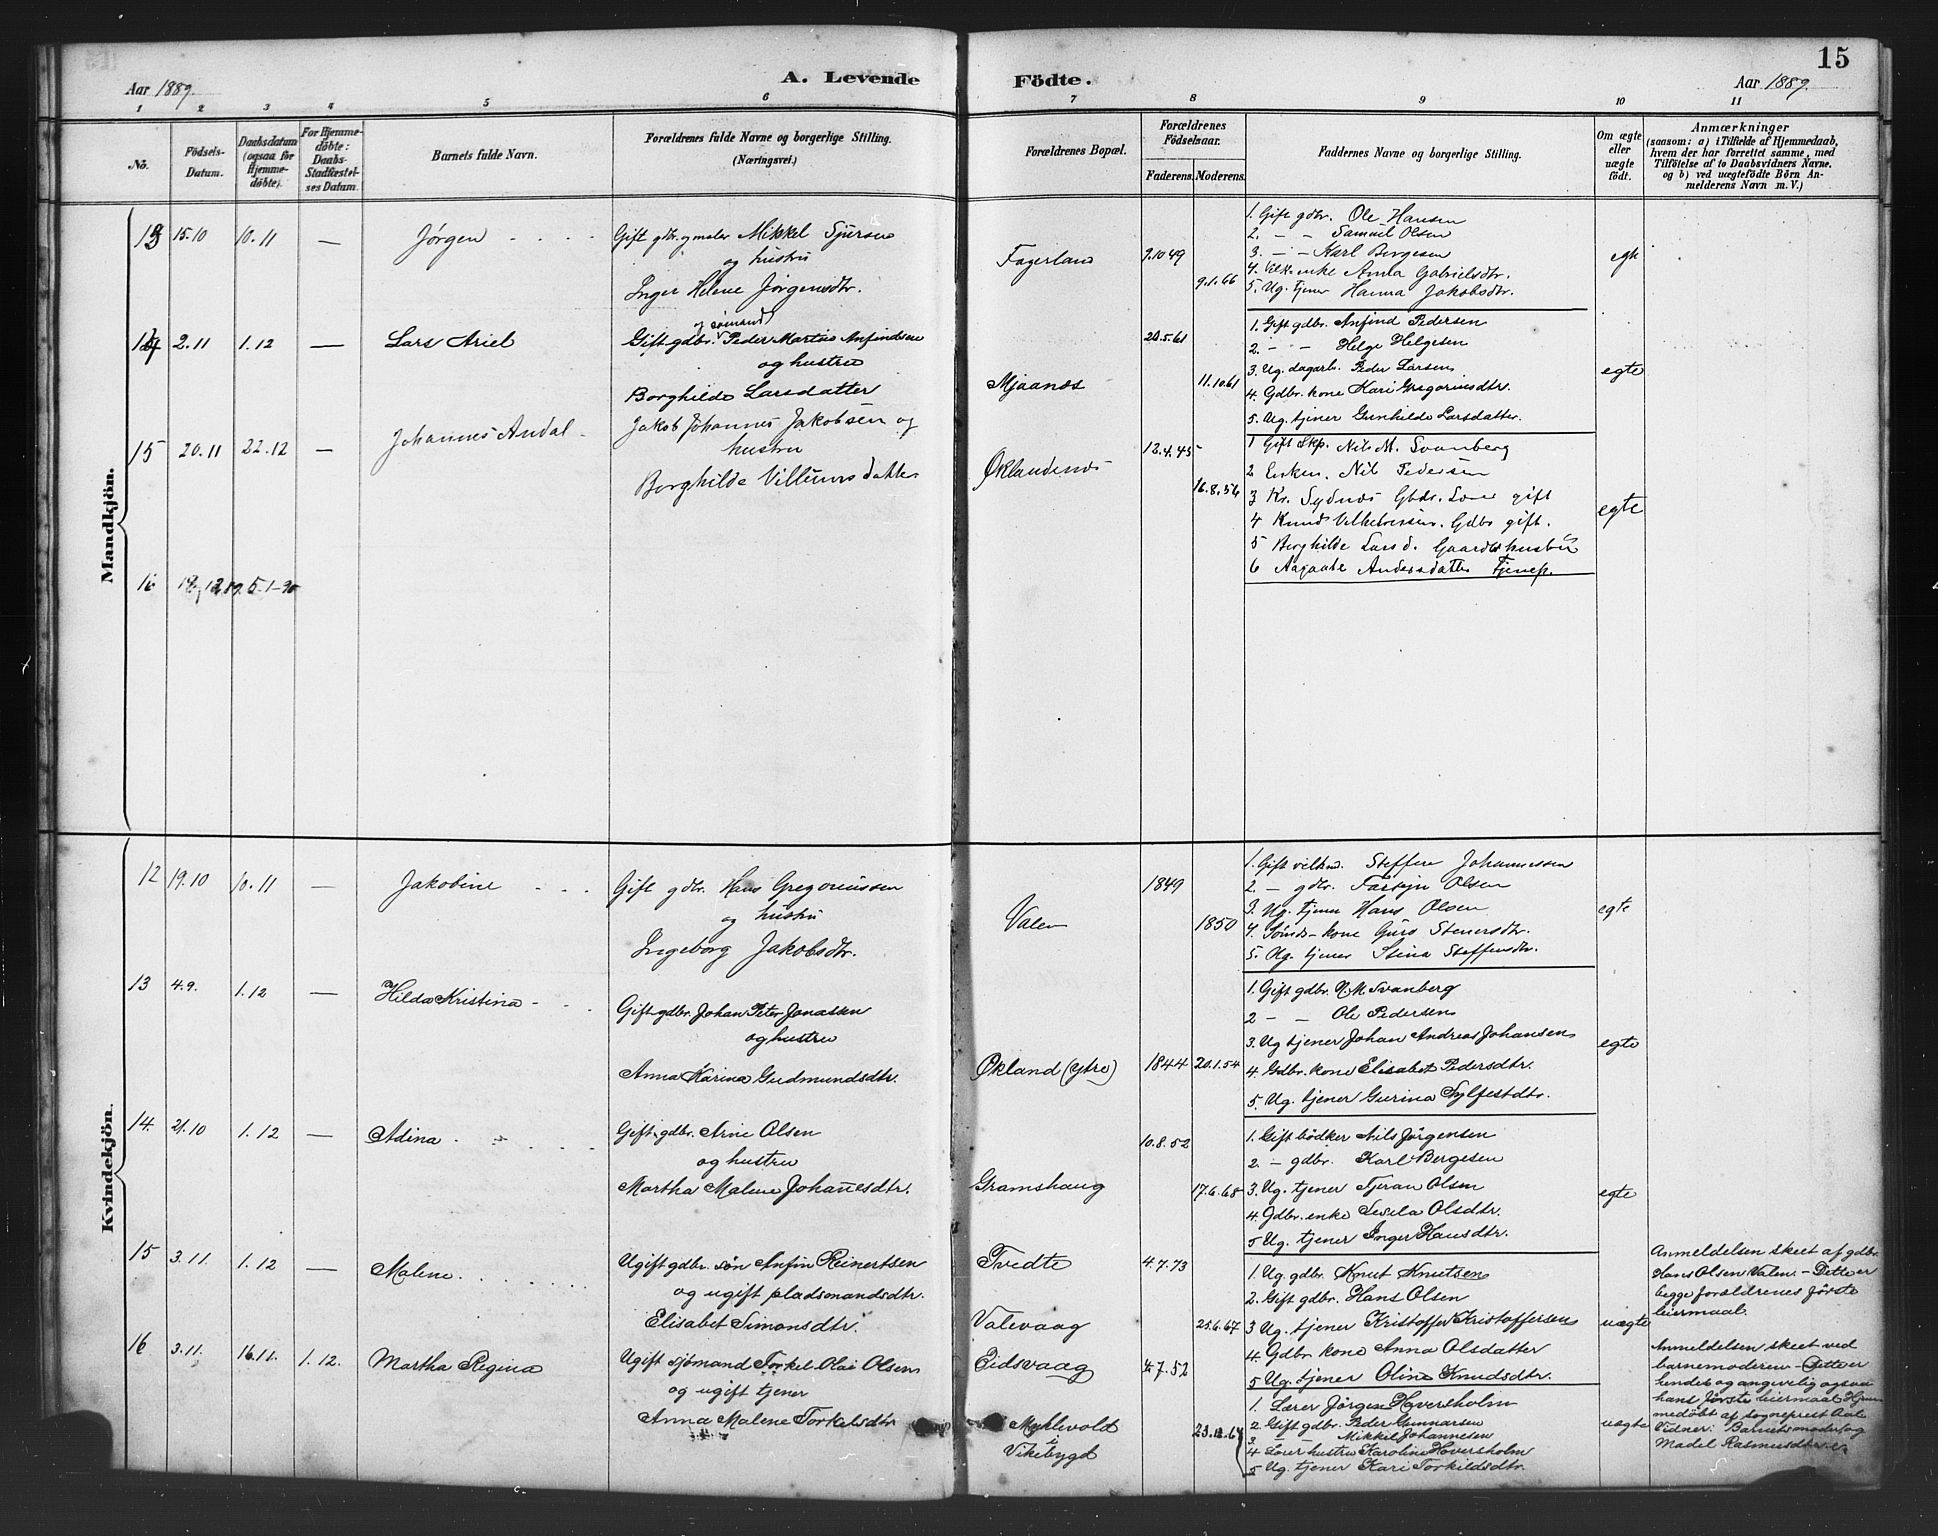 15
Aar 1889. A. Levende Födte. Aar 1889.
1 2 3 4 5 6 7 8 9 10 11
No. Födsels-Datum. Daabsdatum (ogsaa for Hjemmedöbte). For Hjemmedöbte: Daabs-Stadfæstelses Datum. Barnets fulde Navn. Forældrenes fulde Navne og borgerlige Stilling. (Næringsvei.) Forældrenes Bopæl. Forældrenes Födselsaar. Faderens. Moderens. Faddernes Navne og borgerlige Stilling. Om ægte eller uægte födt. Anmærkninger (saasom: a) i Tilfælde af Hjemmedaab, hvem der har forrettet samme, med Tilföielse af to Daabsvidners Navne. og b) ved uægtefödte Börn Anmelderens Navn m. V.)
Mandkjön.
13 15.10 10.11 — Jørgen
Gift gdbr. og maler Mikkel Sjursen
og hustru
Inger Helene Jørgensdtr.
Fagerland 9.10 49 9.1.66
1. Gift gdbr. Ole Hansen
2. — — Samuel Olsen
3. — — Karl Bergesen
4. enke Anna Gabrielsdtr.
5. Ug. tjener Hanna Jakobsdtr.
14 2.11 1.12 — Lars Ariel
og sømand
Gift gdbr. Peder Martin Anfindsen
og hustru
Borghilde Larsdatter
Mjaanæs 20.5.61 11.10.61
1. Gift gdbr. Anfind Pedersen
2. — — Helge Helgesen
3. Ug. dagarb. Peder Larsen
4. Gdbr. kone Kari Gregoriusdtr.
5. Ug. tjener Gunhilde Larsdatter.
egte
15 20.11 22.12 — Johannes Andal
Jakob Johannes Jakobsen og
hustru
Borghilde Villumsdatter
Øklandsnæs 12.4.45 16.8.56
1 Gift Skp. Nils M. Svanberg
2 Enkem. Nil Pedersen
3 Kr. Sydnæs Gbdr. gift
4 Knud Gdbr gift.
5 Borghilde Larsd.
6 Aagaate Andersdatter Tjenep.
egte
16 12.89. 5-1-90
Kvindekjön.
12 19.10 10.11 — Jakobine
Gift gdbr. Hans Gregoriussen
og hustru
Ingeborg Jakobsdtr.
Valen 1849 1850
1. Gift Steffen Johannessen
2. — gdbr. Olsen
3. Ug. tjener Hans Olsen
4. kone Guro Stenersdtr.
5. Ug. tjener Stina Steffensdtr.
egte
13 4.9. 1.12 — Hilda Kristina
Gift gdbr. Johan Peter Jonassen
og hustru
Anna Karina Gudmundsdtr.
Økland (ytre) 1844 20.1.54
1. Gift gdbr. N. M. Svanberg
2 — — Ole Pedersen
3. Ug tjener Johan Andreas Johansen
4. Gdbr. kone Elisabet Pedersdtr.
5. Ug. tjener Gurina Sylfestdtr.
egte
14. 21.10 1.12 — Adina
Gift gdbr. Arne Olsen
og hustru
Martha Malene Johanesdtr.
Gramshaug 10.8.52 17.6.68
1. Gift bødker Nils Jørgensen
2. — gdbr. Karl Bergesen
3. Ug. tjener Tjeran Olsen
4. Gdbr. enke Sesela Olsdtr.
5 Ug. tjener Inger Hansdtr.
egte
15 3.11. 1.12 — Malene
Ugift gdbr. søn Anfin Reinertsen
og ugift pladsmandsdtr.
Elisabet Simonsdtr.
Tvedte 4.7.73
Valevaag 25.6.67
1. Ug. gdbr. Knut Knutsen
2. Gift gdbr. Hans Olsen
3 Ug. tjener Kristoffer Kristoffersen
4. Gdbr. kone Anna Olsdatter
5 Ug. tjener Oline Knudsdtr.
uægte
Anmeldelsen skeet af gdbr.
Hans Olsen Valen — Dette er
begge forældrenes første
leiermaal.
16 3.11. 16.11. 1.12. Martha Regina
Ugift sjømand Torkel Olai Olsen
og ugift tjener
Anna Malene Torkelsdtr
Eidsvaag 4.7.52
Myklevold i
Vikebygd
1. Lærer Jørgen Haversholm
2. Gift gdbr. Peder Gunnarsen
3. — — Mikkel Johannesen
4 Lærer hustru Karoline Haversholm
5 Ug. tjener Kari Torkildsdtr.
uægte
Anmeldelsen skeet ved
barnemoderen — Dette er
hendes og angivelig ogsaa
hans første leiermaal. Hjem
medøbt af sogneprest Aal.
Vidner: Barnets moder og
Madel Rasmusdtr.